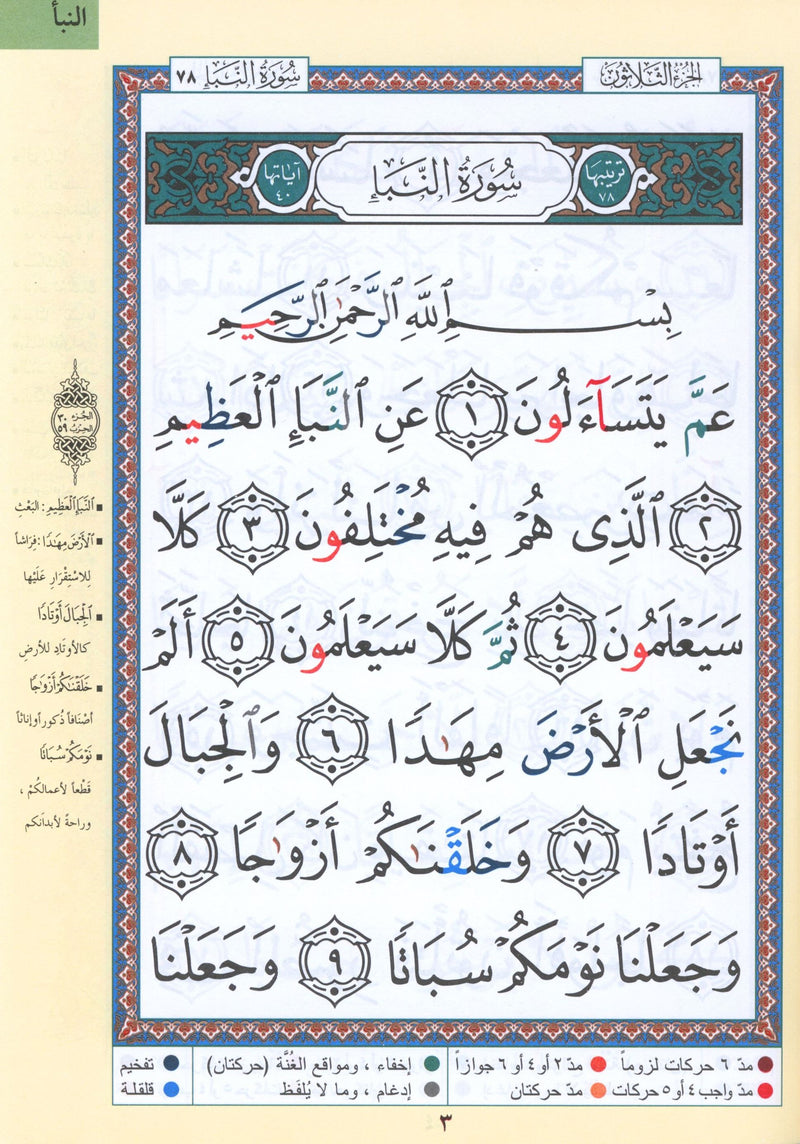 النبأ
الجزء الثلاثون
سورة النبإ ٧٨
ترتيبها ٧٨
سُورَةُ النَّبَإِ
آياتها ٤٠
بِسْمِ ٱللَّهِ ٱلرَّحْمَٰنِ ٱلرَّحِيمِ
عَمَّ يَتَسَآءَلُونَ ١ عَنِ ٱلنَّبَإِ ٱلْعَظِيمِ
٢ ٱلَّذِى هُمْ فِيهِ مُخْتَلِفُونَ ٣ كَلَّا
سَيَعْلَمُونَ ٤ ثُمَّ كَلَّا سَيَعْلَمُونَ ٥ أَلَمْ
نَجْعَلِ ٱلْأَرْضَ مِهَٰدًا ٦ وَٱلْجِبَالَ
أَوْتَادًا ٧ وَخَلَقْنَٰكُمْ أَزْوَٰجًا ٨
وَجَعَلْنَا نَوْمَكُمْ سُبَاتًا ٩ وَجَعَلْنَا
الجزء ٣٠
الحزب ٥٩
■ ٱلنَّبَإِ ٱلْعَظِيمِ : البَعْثِ
■ ٱلْأَرْضَ مِهَٰدًا : فِرَاشاً
لِلاسْتِقْرَارِ عَلَيْها
■ ٱلْجِبَالَ أَوْتَادًا
كالأوتَادِ للأرضِ
■ خَلَقْنَٰكُمْ أَزْوَٰجًا
أصْنَافاً ذُكور أو إناثاً
■ نَوْمَكُمْ سُبَاتًا
قَطْعاً لأعمالكُمْ ،
وراحةً لأبدانكم
● مدّ ٦ حركات لزوماً ● مدّ ٢ أو ٤ أو ٦ جوازاً ● إخفاء ، ومواقع الغُنَّة (حركتان) ● تفخيم
● مدّ واجب ٤ أو ٥ حركات ● مدّ حركتان ● إدغام ، وما لا يُلفَظ ● قلقلة
٣